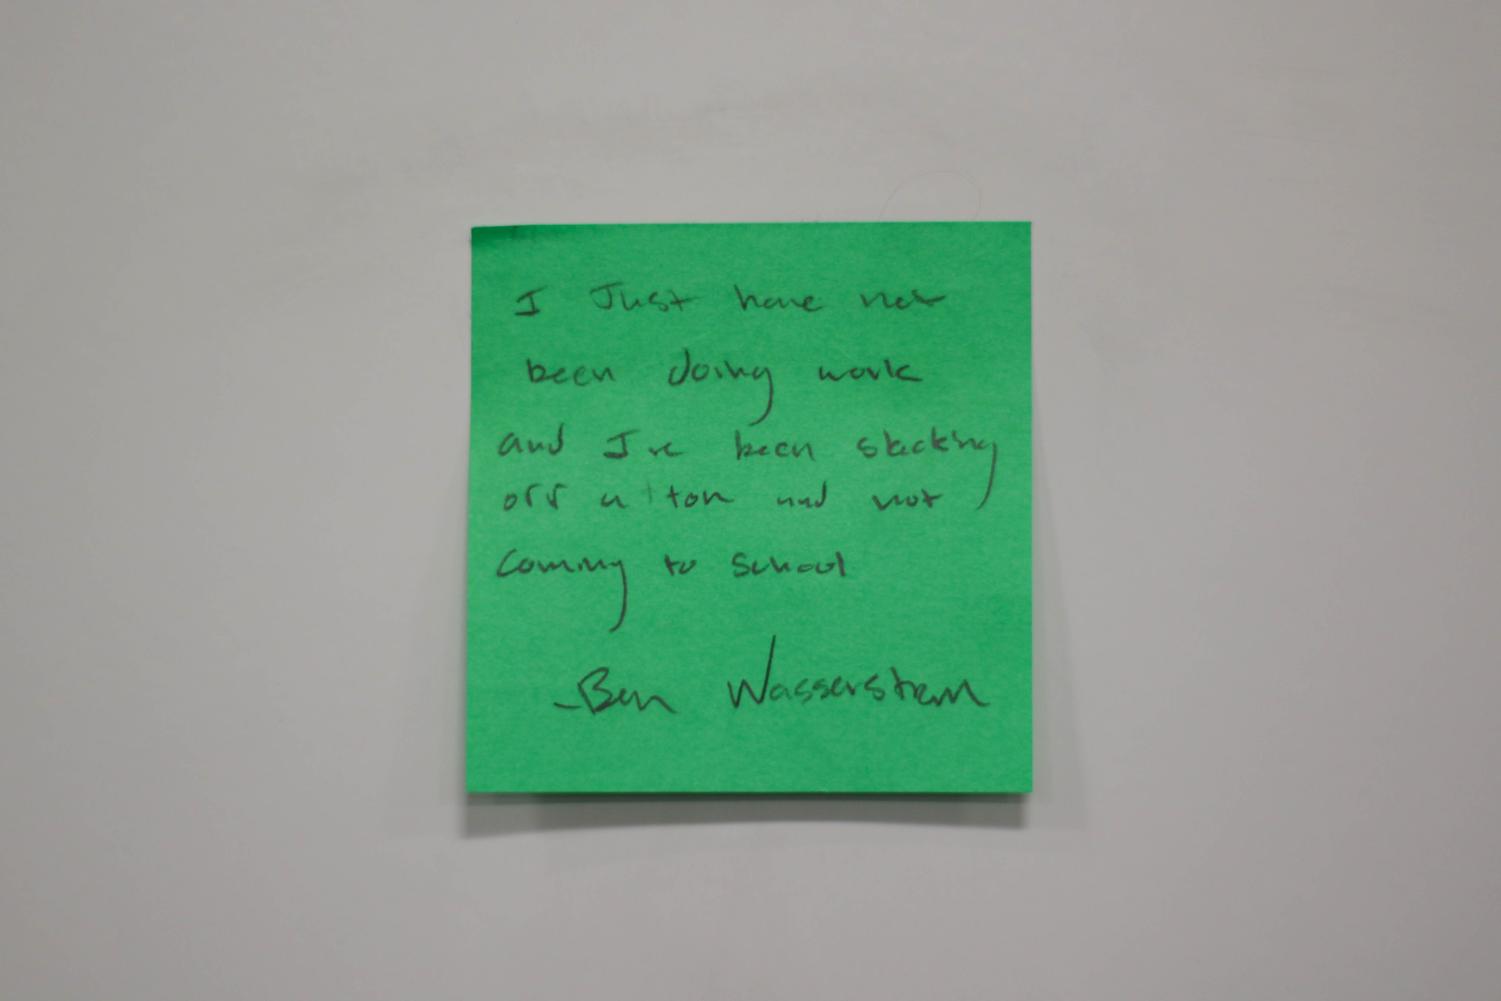 I Just have not
been doing work
and I've been slacking
off a ton and not
coming to school
-Ben Wasserstein